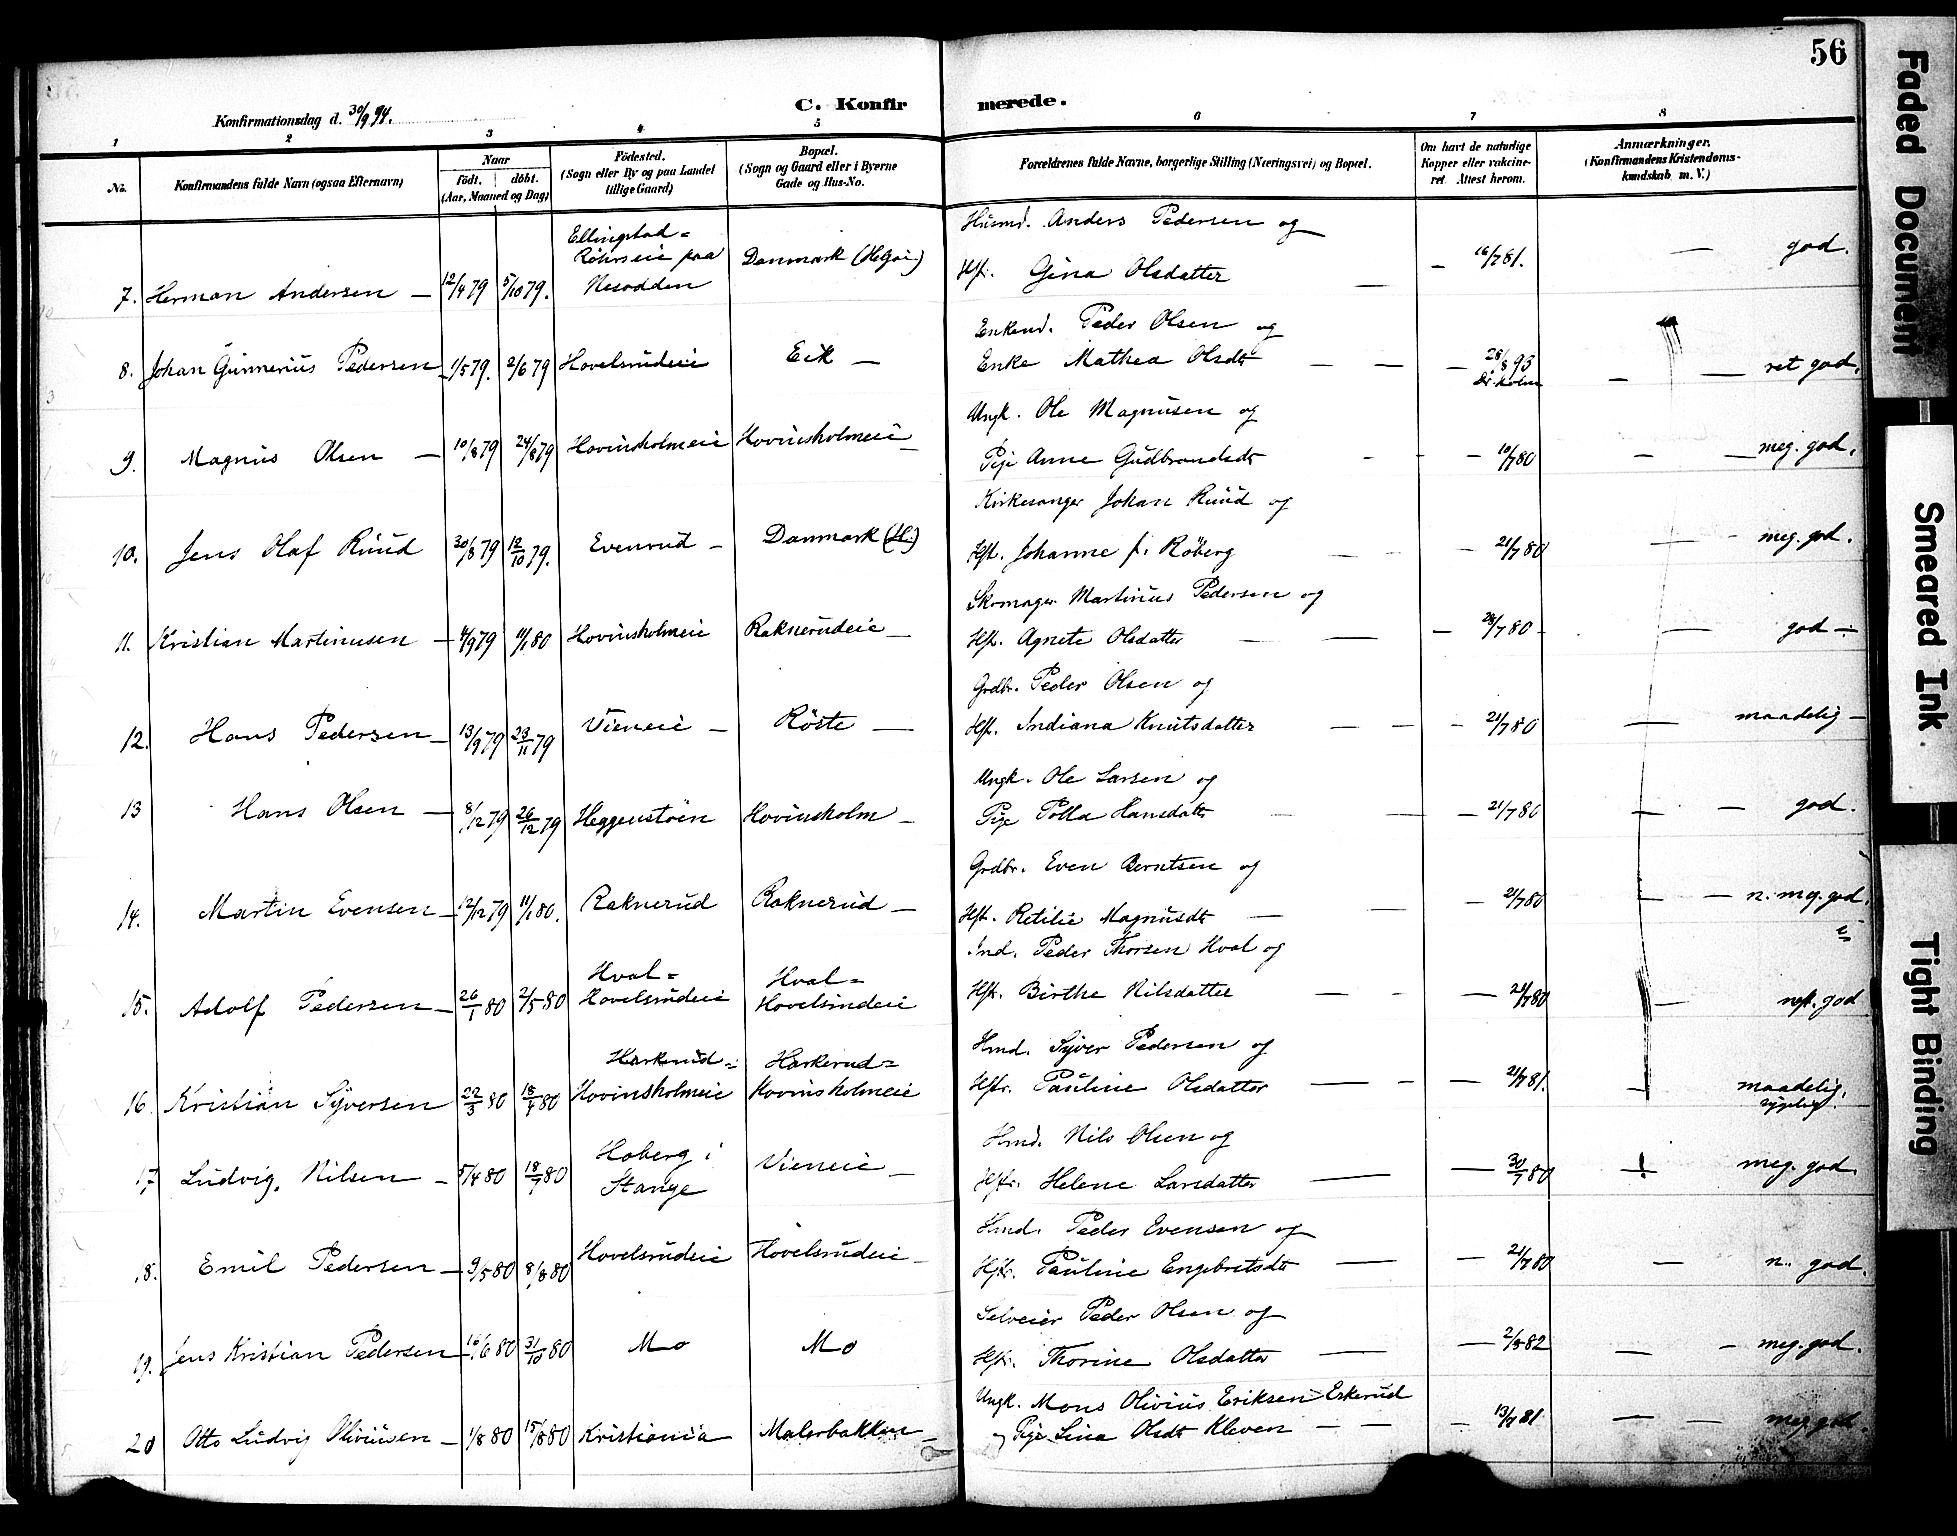 56
Konfirmationsdag d. 30/9 94.
C. Konfirmerede.
1 2 3 4 5 6 7 8
No. Konfirmandens fulde Navn (ogsaa Efternavn) Naar født. døbt. (Aar, Maaned og Dag) Fødested. (Sogn eller By og paa Landet tillige Gaard) Bopæl. (Sogn og Gaard eller i Byerne Gade og Hus-No. Forældrenes fulde Navne, borgerlige Stilling (Næringsvei) og Bopæl. Om havt de naturlige Kopper eller vakcineret. Attest herom. Anmærkninger. (Konfirmandens Kristendomskundskab m. V.)
7. Herman Andersen — 12/4 79 5/10 79. Ellingstad= eie paa Nesodden Danmark (Helgøi) Husmd. Anders Pedersen og
Hf. Gina Olsdatter — 16/7 81. — god.
8. Johan Gunnerius Pedersen 1/5 79. 2/6 79 Hovelsrudeie Eik — Enkemd. Peder Olsen og
Enke Mathea Olsdtr — 28/8 93 Dr. Holm — ret god.
9. Magnus Olsen — 10/8 79 24/8 79 Hovinsholmeie Hovinsholmeie — Ungk. Ole Magnusen og
Pige Anne Gudbrandsdtr — 10/7 80 — meg. god.
10. Jens Olaf Ruud 30/8 79 12/10 79. Evenrud — Danmark (H.) Kirkesanger Johan Ruud og
Hft. Johanne f. Røberg — 21/7 80 — meg. god.
11. Kristian Martinusen — 4/9 79 11/1 80 Hovinsholmeie Raknerudeie — Skomager Martinus Pedersen og
Hft. Agnete Olsdatter — 28/7 80 — god —
12. Hans Pedersen — 13/9 79 23/11 79 Vieneie — Röste — Grdbr. Peder Olsen og
Hft. Indiana Knutsdatter — 21/7 80 — maadelig —
13 Hans Olsen — 8/12 79 26/12 79 Heggenstöen Hovinsholm — Ungk. Ole Larsen og
Pige Polla Hansdatter — 21/7 80 — god.
14. Martin Evensen — 12/12 79 11/1 80. Raknerud Raknerud — Grdbr. Even Berntsen og
Hft. Retilie Magnusdtr — 21/7 80 — n. meg. god.
15. Adolf Pedersen — 26/1 80 2/5 80 Hval= Hovelsrudeie Hval= Hovelsrudeie Ind. Peder Thorsen Hval og
Hft. Birthe Nilsdatter — 21/7 80 — god
16. Kristian Syversen 22/3 80 18/4 80 Harkerud= Hovinsholmeie Harkerud= Hovinsholmeie Hmd. Syver Pedersen og
Hfr. Pauline Olsdatter — 21/7 81. — maadelig, sygelig.
17 Ludvig Nilsen — 5/4 80 18/7 80 Hoberg i Stange Vieneie — Hmd. Nils Olsen og
Hfr. Helene Larsdatter — 30/7 80 — meg. god.
18. Emil Pedersen — 9/5 80 8/8 80 Hovelsrudeie Hovelsrudeie — Hmd. Peder Evensen og
Hfr. Pauline Engebretsdtr — 21/7 80 — n. god.
19. Jens Kristian Pedersen 16/6 80 31/10 80 Mo Mo Selveier Peder Olsen og
Hfr. Thorine Olsdatter — 2/8 82 — meg. god.
20 Otto Ludvig Oliviusen — 1/8 80 15/8 80 Kristiania Malerbakken — Ungk. Mons Olivius Eriksen Eskerud
og Pige Lina Olsdtr Kleven — 13/7 81 — meg. god.
Faded Document
Smeared Ink.
Tight Binding